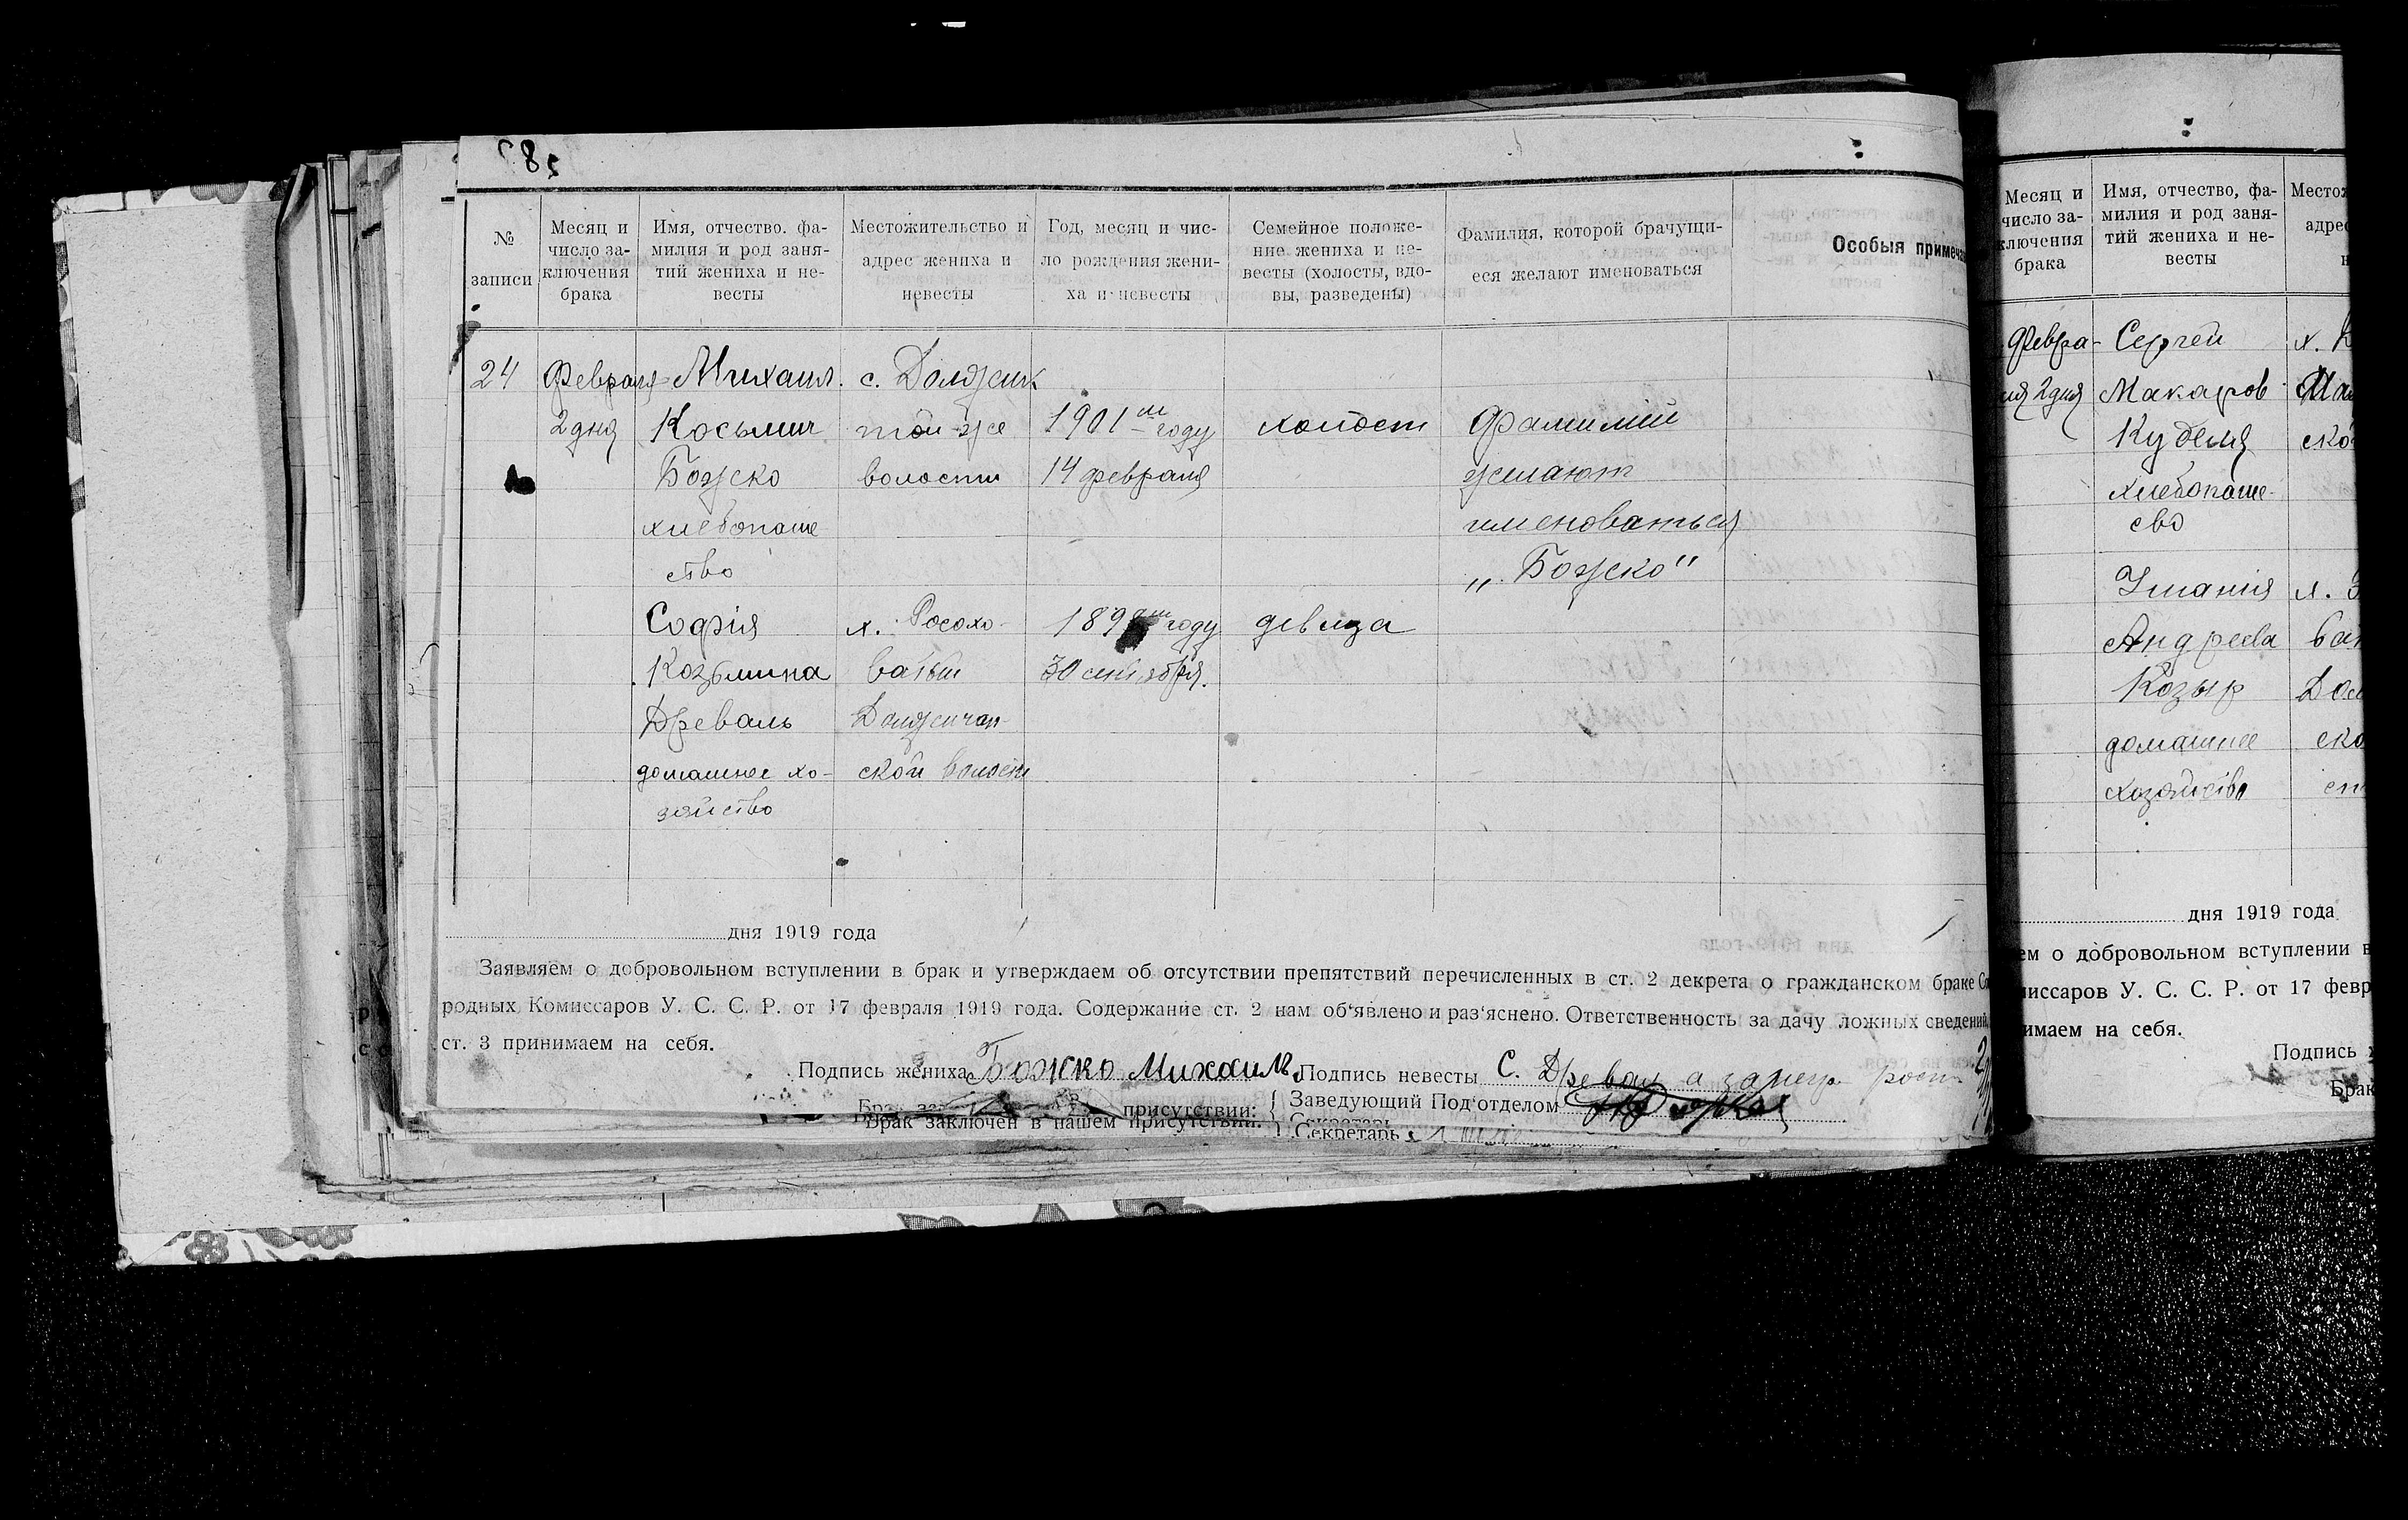 №
записи
Месяц и
число за-
ключения
брака
Имя, отчество. фа-
милия и род заня-
тий жениха и не-
весты
Местожительство и
адрес жениха и
невесты
Год, месяц и чис-
ло рождения жени-
ха и невесты
Семейное положе-
ние жениха и не-
весты (холосты, вдо-
вы, разведены)
Фамилия, которой брачущи-
еся желают именоваться
Особыя примеча
24
Февраля
2 дня
Михаил
Косьмич
Божско
хлебопаше
ство
с. Должик
той-же
волости
1901 м году
14 февраля
холост
Фамилий
желают
именоваться
„Божско"
Софія
Козьмина
Древаль
домашнее хо-
зяйство
х. Росохо-
ватый
Должичан-
ской волости
189 году
30 сентября.
девица
дня 1919 года
Заявляем о добровольном вступлении в брак и утверждаем об отсутствии препятствий перечисленных в ст. 2 декрета о гражданском браке Со
родных Комиссаров У. С. С. Р. от 17 февраля 1919 года. Содержание ст. 2 нам об‘явлено и раз‘яснено. Ответственность за дачу ложных сведений
ст. 3 принимаем на себя.
Подпись жениха Божко Михаилъ Подпись невесты С. Древаль а за неgr
присутствии: { Заведующий Под‘отделом
Брак заключен в нашем присутствии: Секретарь
Месяц и
число за-
ключения
брака
Имя, отчество, фа-
милия и род заня-
тий жениха и не-
весты
Местож
адрес
н
Февра-
ля 2 дня
Сергей
Макаров
Кубеля
хлебопаше-
сво
х.
ско
Андреева
Козыр
домашнее
хозяйство
х.
ско
ст
дня 1919 года
ем о добровольном вступлении в
миссаров У. С. С. Р. от 17 февр
имаем на себя.
Подпись ж
Брак